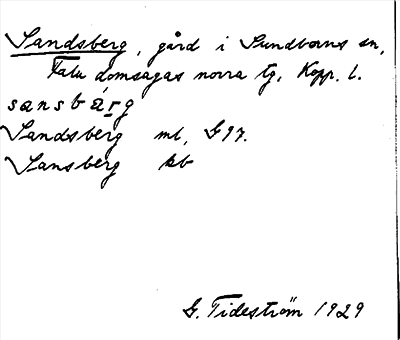 Sandsberg, gård i Sundborns sn,
Falu domsagas norra tg. Kopp. l.
sansbärg
Sandsberg ml, G97.
Sansberg kb
G. Tideström 1929